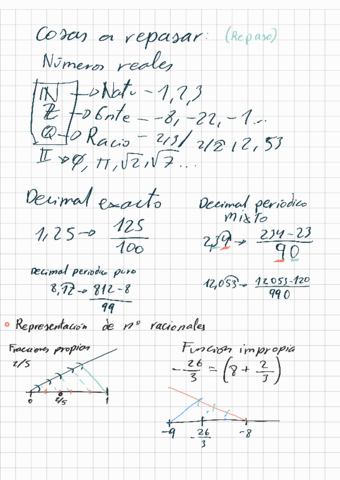 Cosas a repasar: (Repaso)
Números reales
ℕ → Natu - 1, 2, 3
ℤ → Ente - -8, -22, -1...
ℚ → Racio - 2/3, 2/2, 2, 53
𝕀 → φ, π, √2, √7 ...
Decimal exacto
1,25 → 125/100
Decimal periódico mixto
2,39 → 234-23/90
Decimal periodico puro
8,12 → 812-8/99
12,053 → 12053-120/990
Representación de nº racionales
Fracciones propias
2/5
0 2/5 1
Funcion impropia
-26/3 = (8 + 2/3)
-9 -26/3 -8